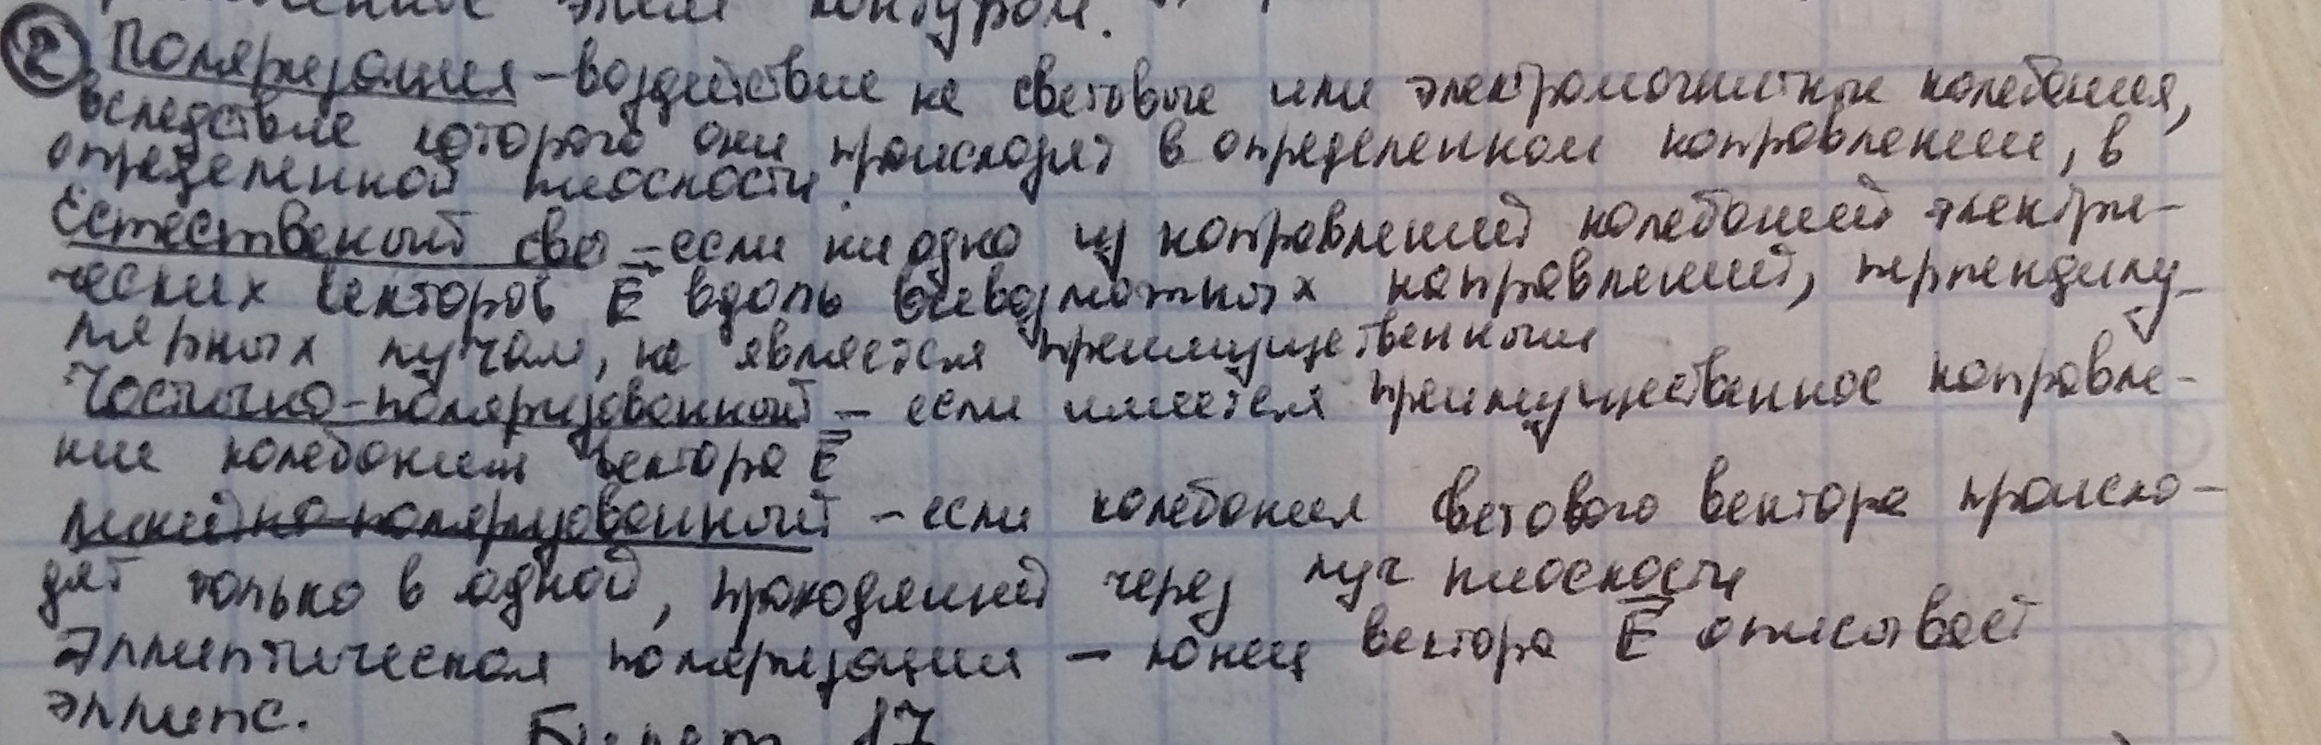 этим контуром.
② Поляризация – воздействие на световые или электромагнитные колебания,
вследствие которого они происходят в определенном направлении, в
определенной плоскости.
Естественый свет – если ни одно из направлений колебаний электри-
ческих векторов E вдоль всевозможных направлений, перпендику-
лярных лучам, не является преимущественным
Частично-поляризованный – если имеется преимущественное направле-
ние колебания вектора E
линейно-поляризованный – если колебания светового вектора происхо-
дят только в одной, проходящей через луч плоскости
Эллиптическая поляризация – конец вектора E описывает
эллипс.
Билет 17